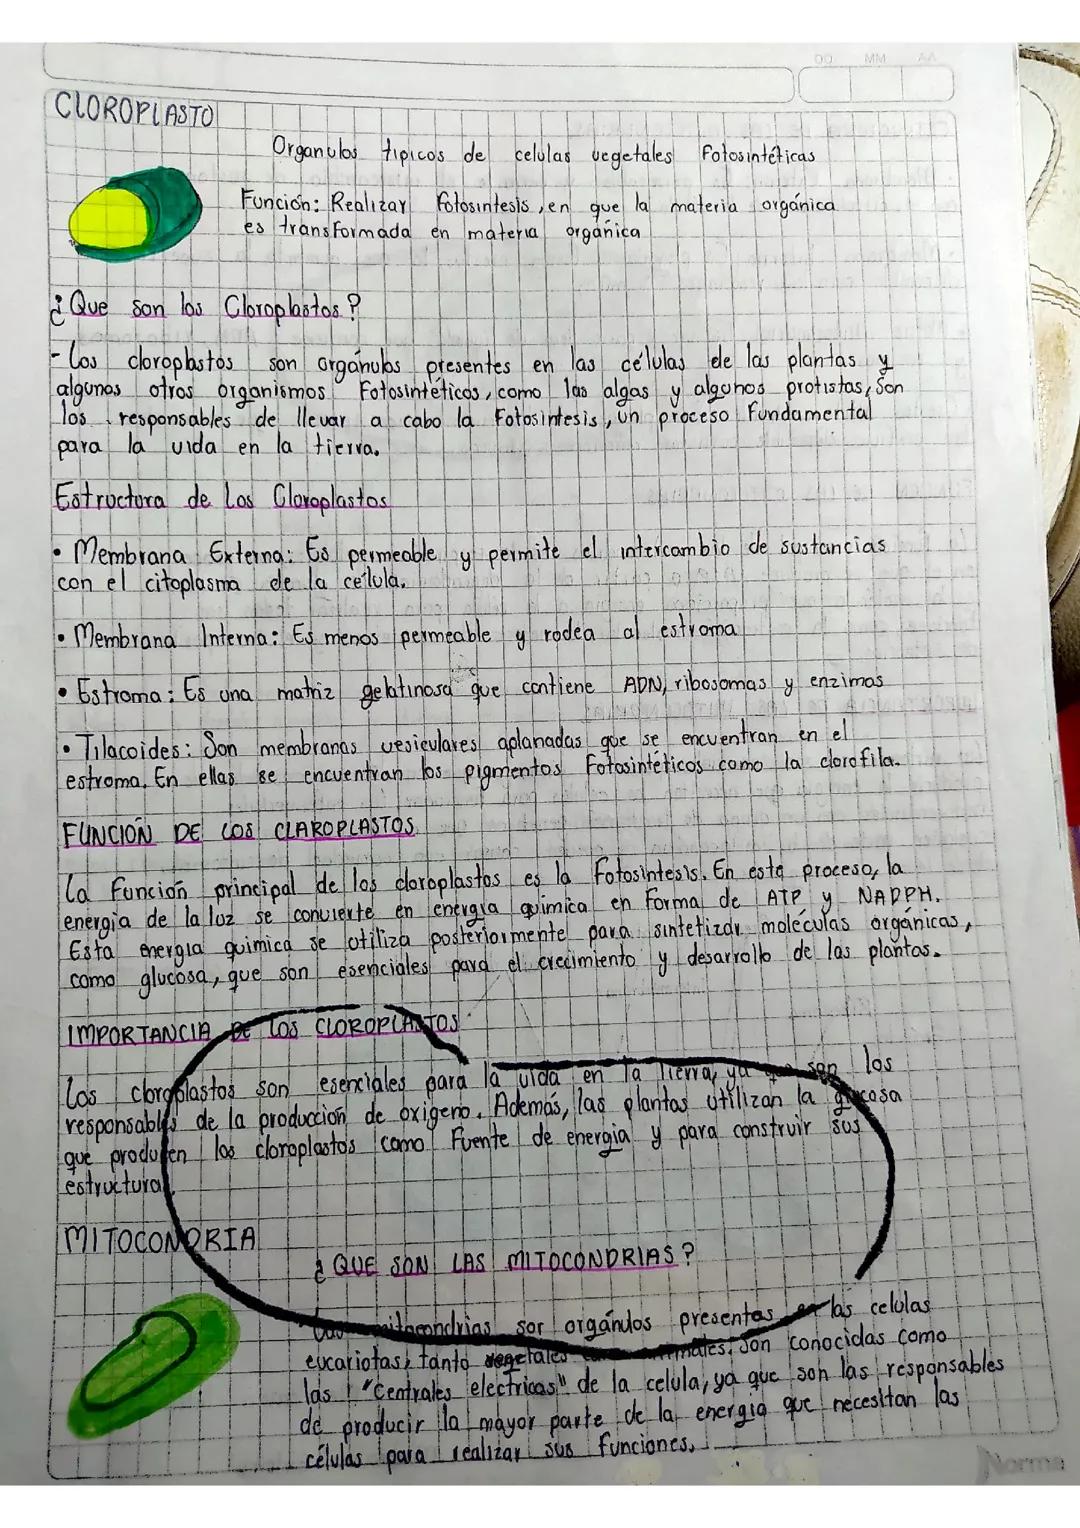 DD MM AA
CLOROPLASTO
Organulos tipicos de celulas vegetales Fotosintéticas
Función: Realizar fotosintesis, en que la materia orgánica
es transformada en materia orgánica
¿Que son los Cloroplastos?
- Los cloroplastos son orgánulos presentes en las células de las plantas y
algunas otros organismos Fotosintéticos, como las algas y algunos protistas, Son
los responsables de llevar a cabo la Fotosintesis, un proceso Fundamental
para la vida en la tierra.
Estructura de Los Cloroplastos
• Membrana Externa: Es permeable y permite el intercambio de sustancias
con el citoplasma de la célula.
• Membrana Interna: Es menos permeable y rodea al estroma
• Estroma: Es una matriz gelatinosa que contiene ADN, ribosomas y enzimas
• Tilacoides: Son membranas vesiculares aplanadas que se encuentran en el
estroma. En ellas se encuentran los pigmentos Fotosintéticos como la clorofila.
FUNCIÓN DE LOS CLAROPLASTOS
La Función principal de los cloroplastos es la Fotosintesis. En este proceso, la
energia de la luz se convierte en energia quimica en Forma de ATP y NADPH.
Esta energia quimica se utiliza posteriormente para sintetizar moléculas orgánicas,
como glucosa, que son esenciales para el crecimiento y desarrollo de las plantas.
IMPORTANCIA DE LOS CLOROPLASTOS
Los cloroplastos son esenciales para la vida en la Tierra, ya que son los
responsables de la producción de oxigeno. Además, las plantas utilizan la glucosa
que producen los cloroplastos como Fuente de energia y para construir sus
estructura.
MITOCONDRIA
¿QUE SON LAS MITOCONDRIAS?
Las mitocondrias sor orgánulos presentes en las celulas
eucariotas, tanto vegetales animales. Son conocidas como
las "Centrales electricas" de la celula, ya que son las responsables
de producir la mayor parte de la energia que necesitan las
células para realizar sus Funciones.
Norma